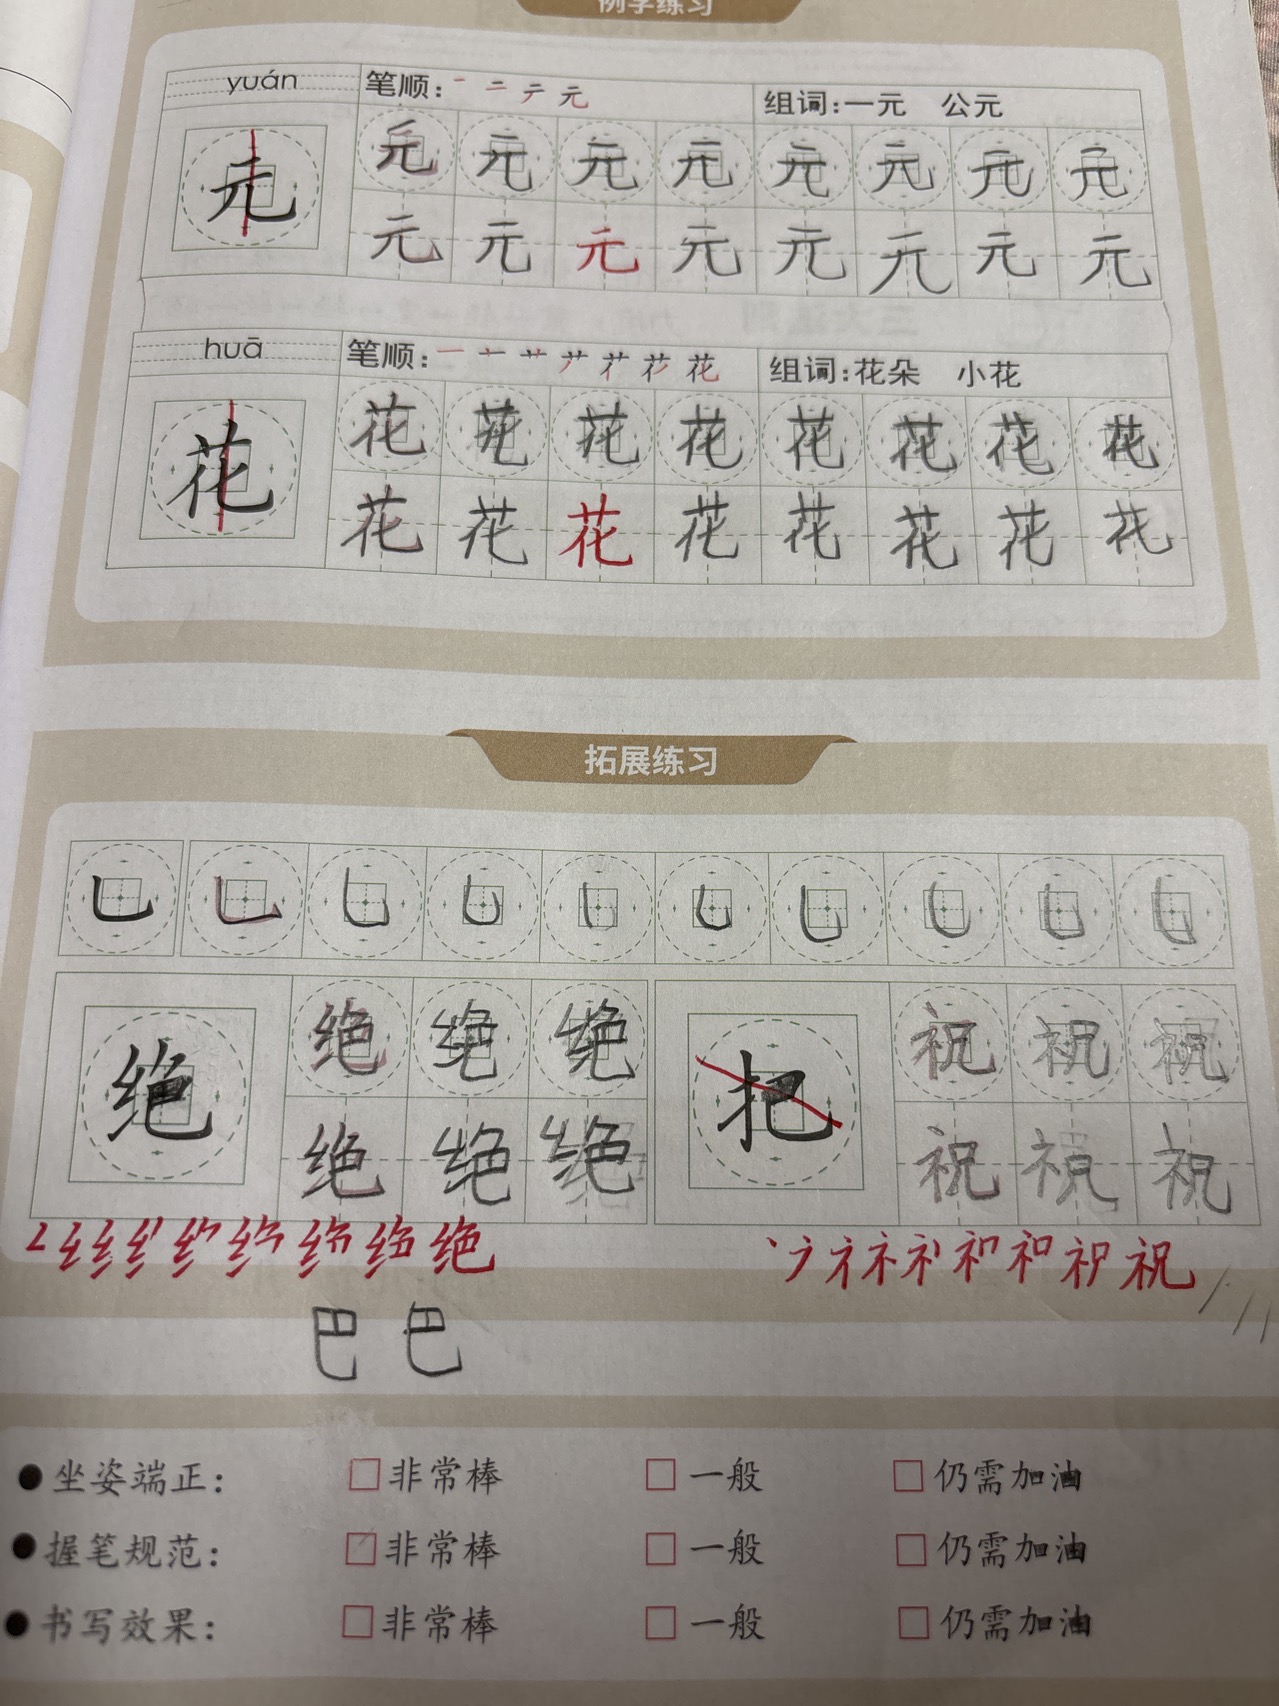 例字练习
yuán 笔顺: 一 二 テ 元 组词:一元 公元
元 元 元 元 元 元 元 元 元
元 元 元 元 元 元 元 元
huā 笔顺: 花 组词:花朵 小花
花 花 花 花 花 花 花 花 花
花 花 花 花 花 花 花 花
拓展练习
乚 乚 乚 乚 乚 乚 乚 乚 乚 乚
绝 绝 绝 绝 把 祝 祝 祝
绝 绝 绝 祝 祝 祝
绝 祝
巴 巴
●坐姿端正: □非常棒 □一般 □仍需加油
●握笔规范: □非常棒 □一般 □仍需加油
●书写效果: □非常棒 □一般 □仍需加油